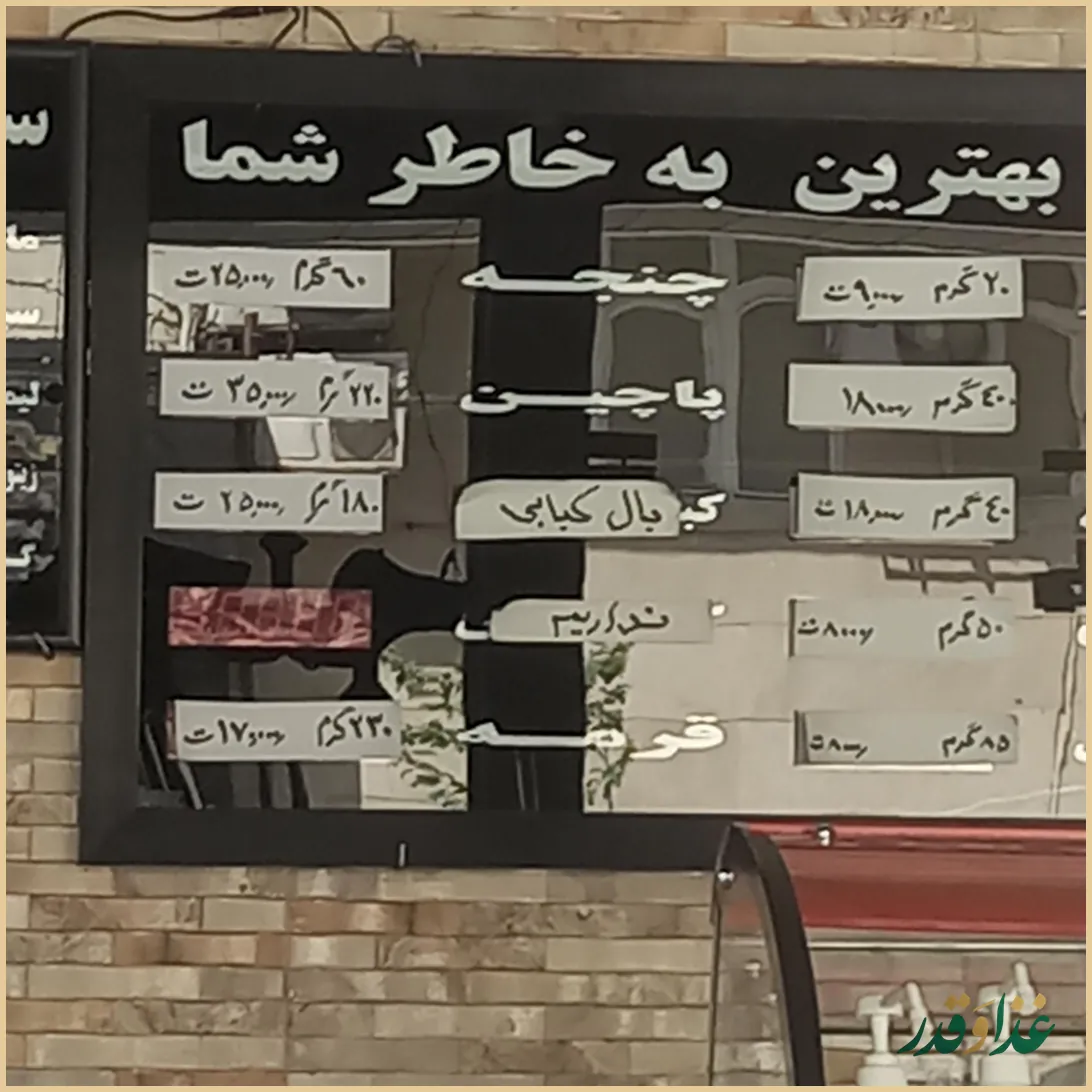 بهترین به خاطر شما
۲۰ گرم ۹,۰۰۰ ت
چنجه
۶۰ گرم ۲۵,۰۰۰ ت
۴۰ گرم ۱۸,۰۰۰
پاچین
۲۲۰ گرم ۳۵,۰۰۰ ت
۴۰ گرم ۱۸,۰۰۰ ت
بال کبابی
۱۸۰ گرم ۲۵,۰۰۰ ت
۵۰ گرم ۸,۰۰۰ ت
نداریم
۸۵ گرم ۸,۰۰۰ ت
قرمه
۲۳۰ گرم ۱۷,۰۰۰ ت
غذا و قدر